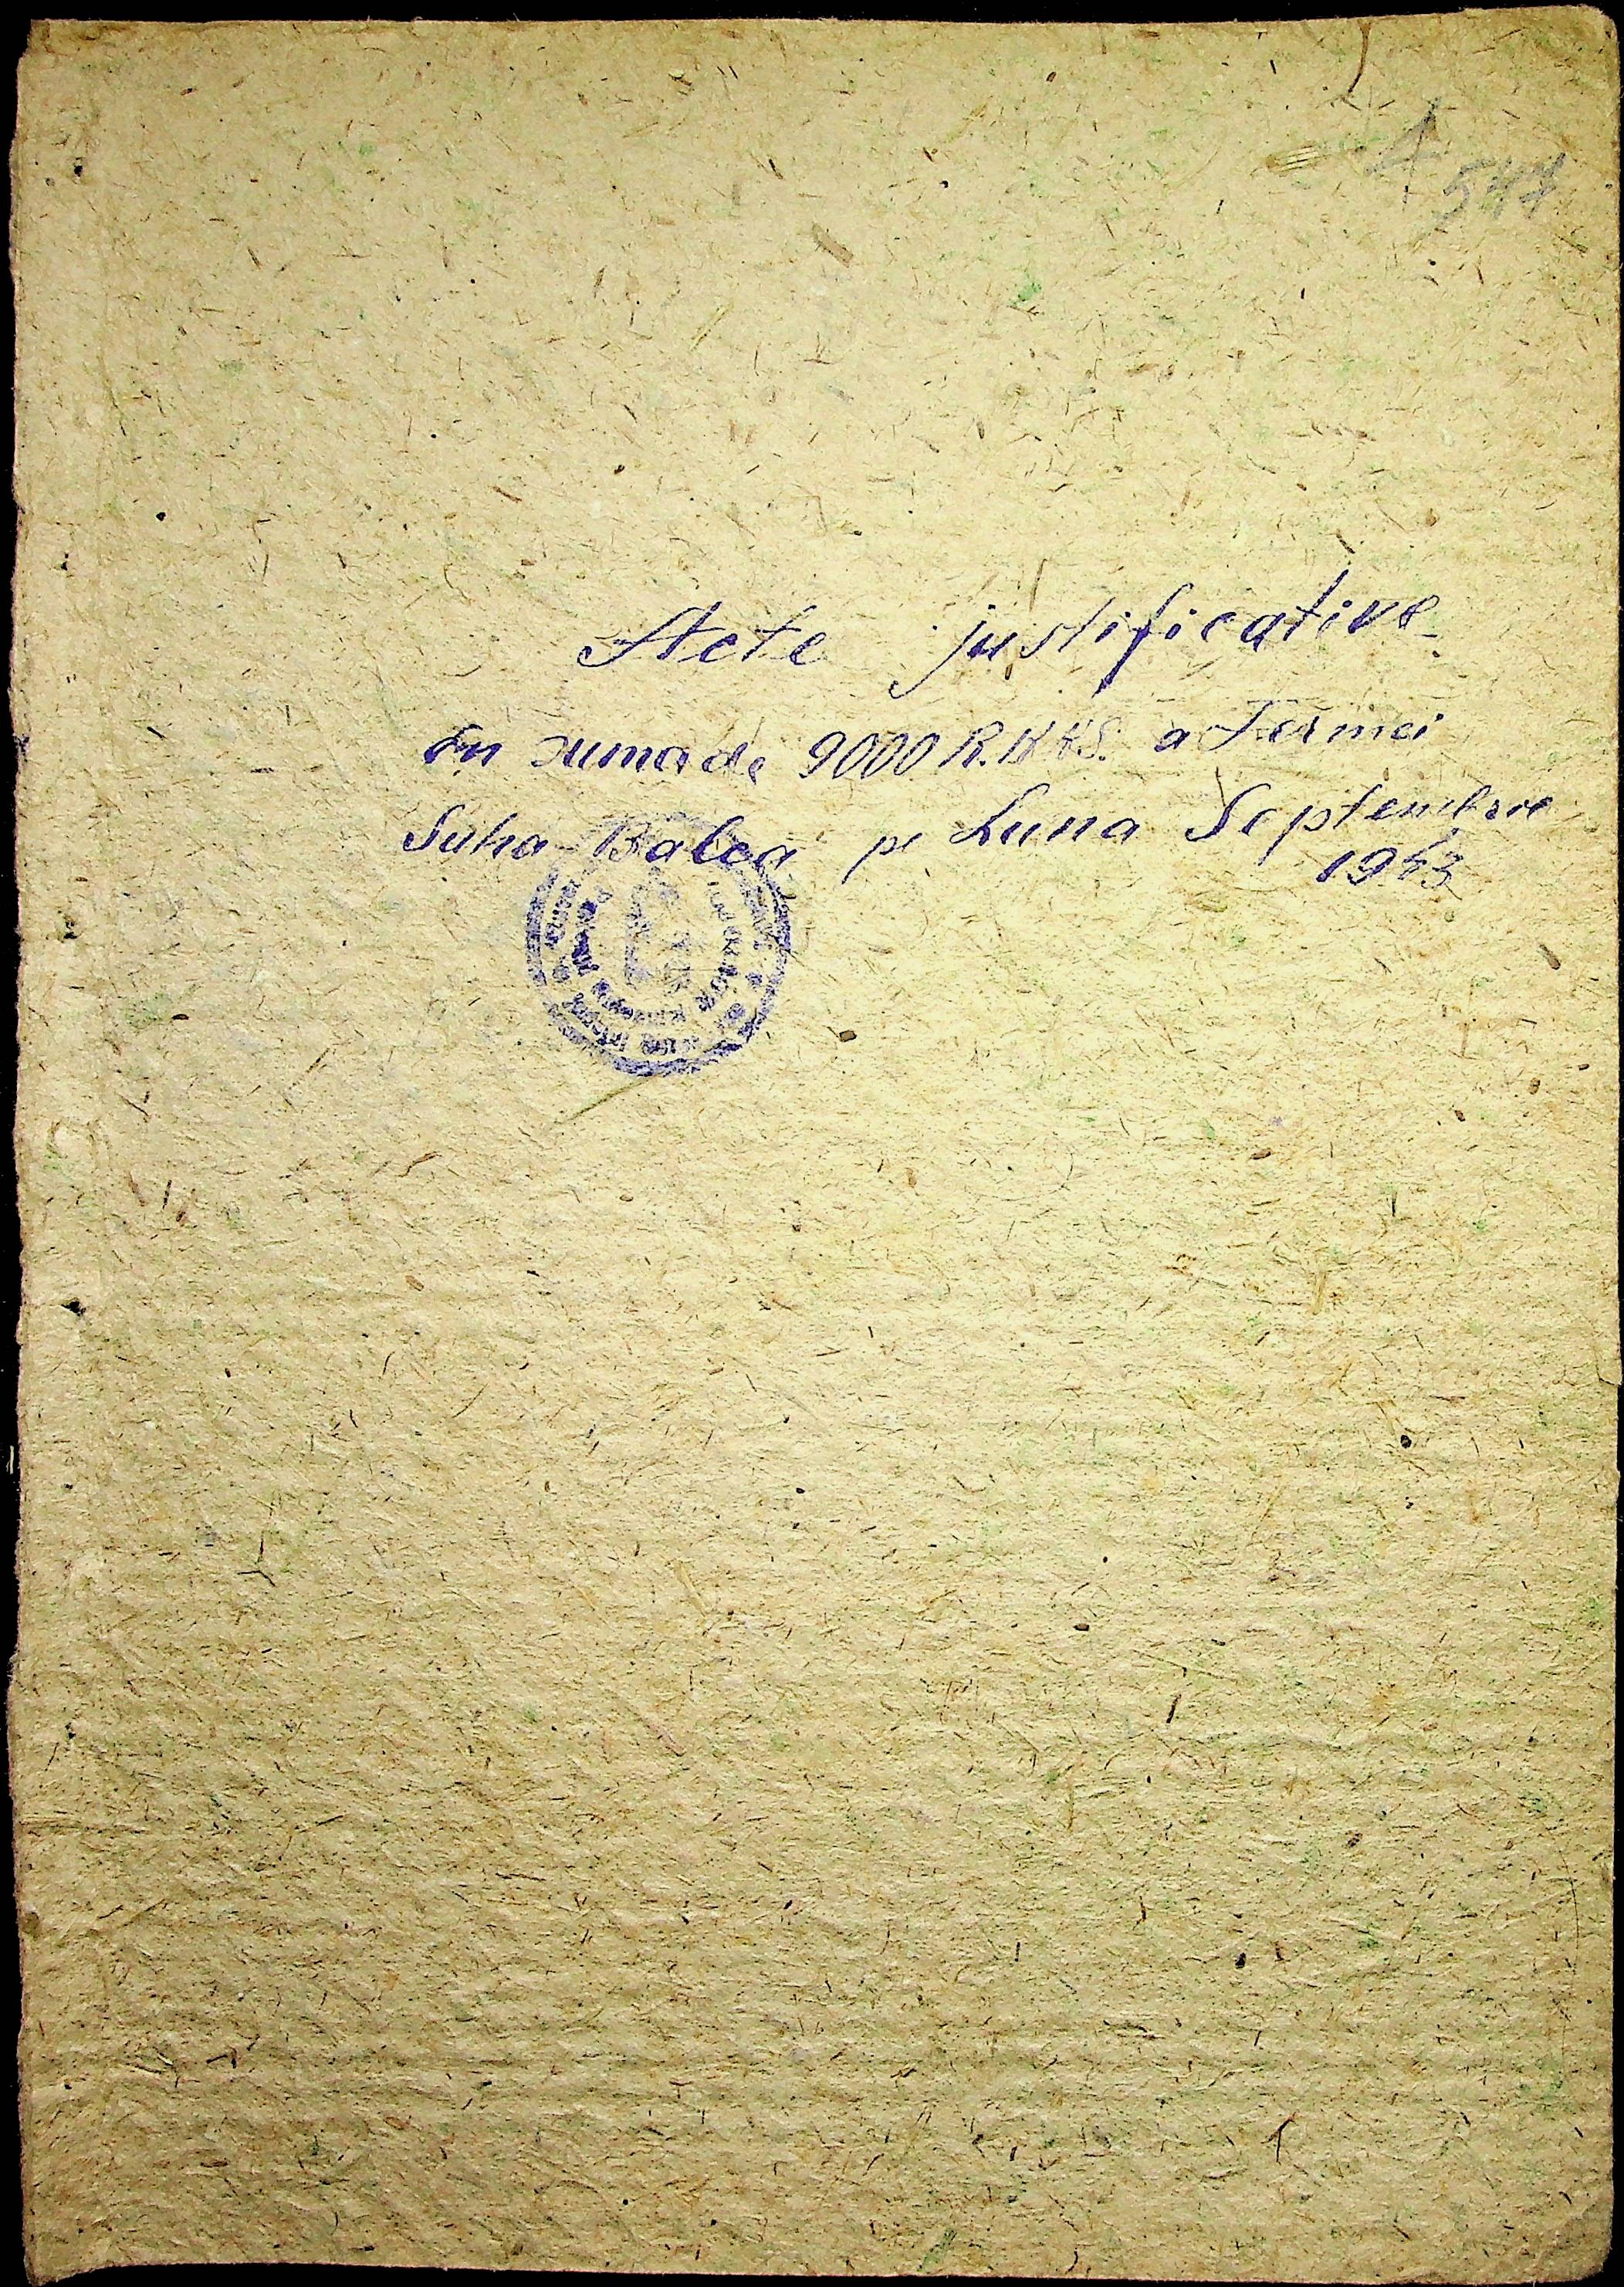 547
Acte justificative
în suma de 9000 R.K.K.S. a Fermei
Suha Balca pe Luna Septembrie
1943